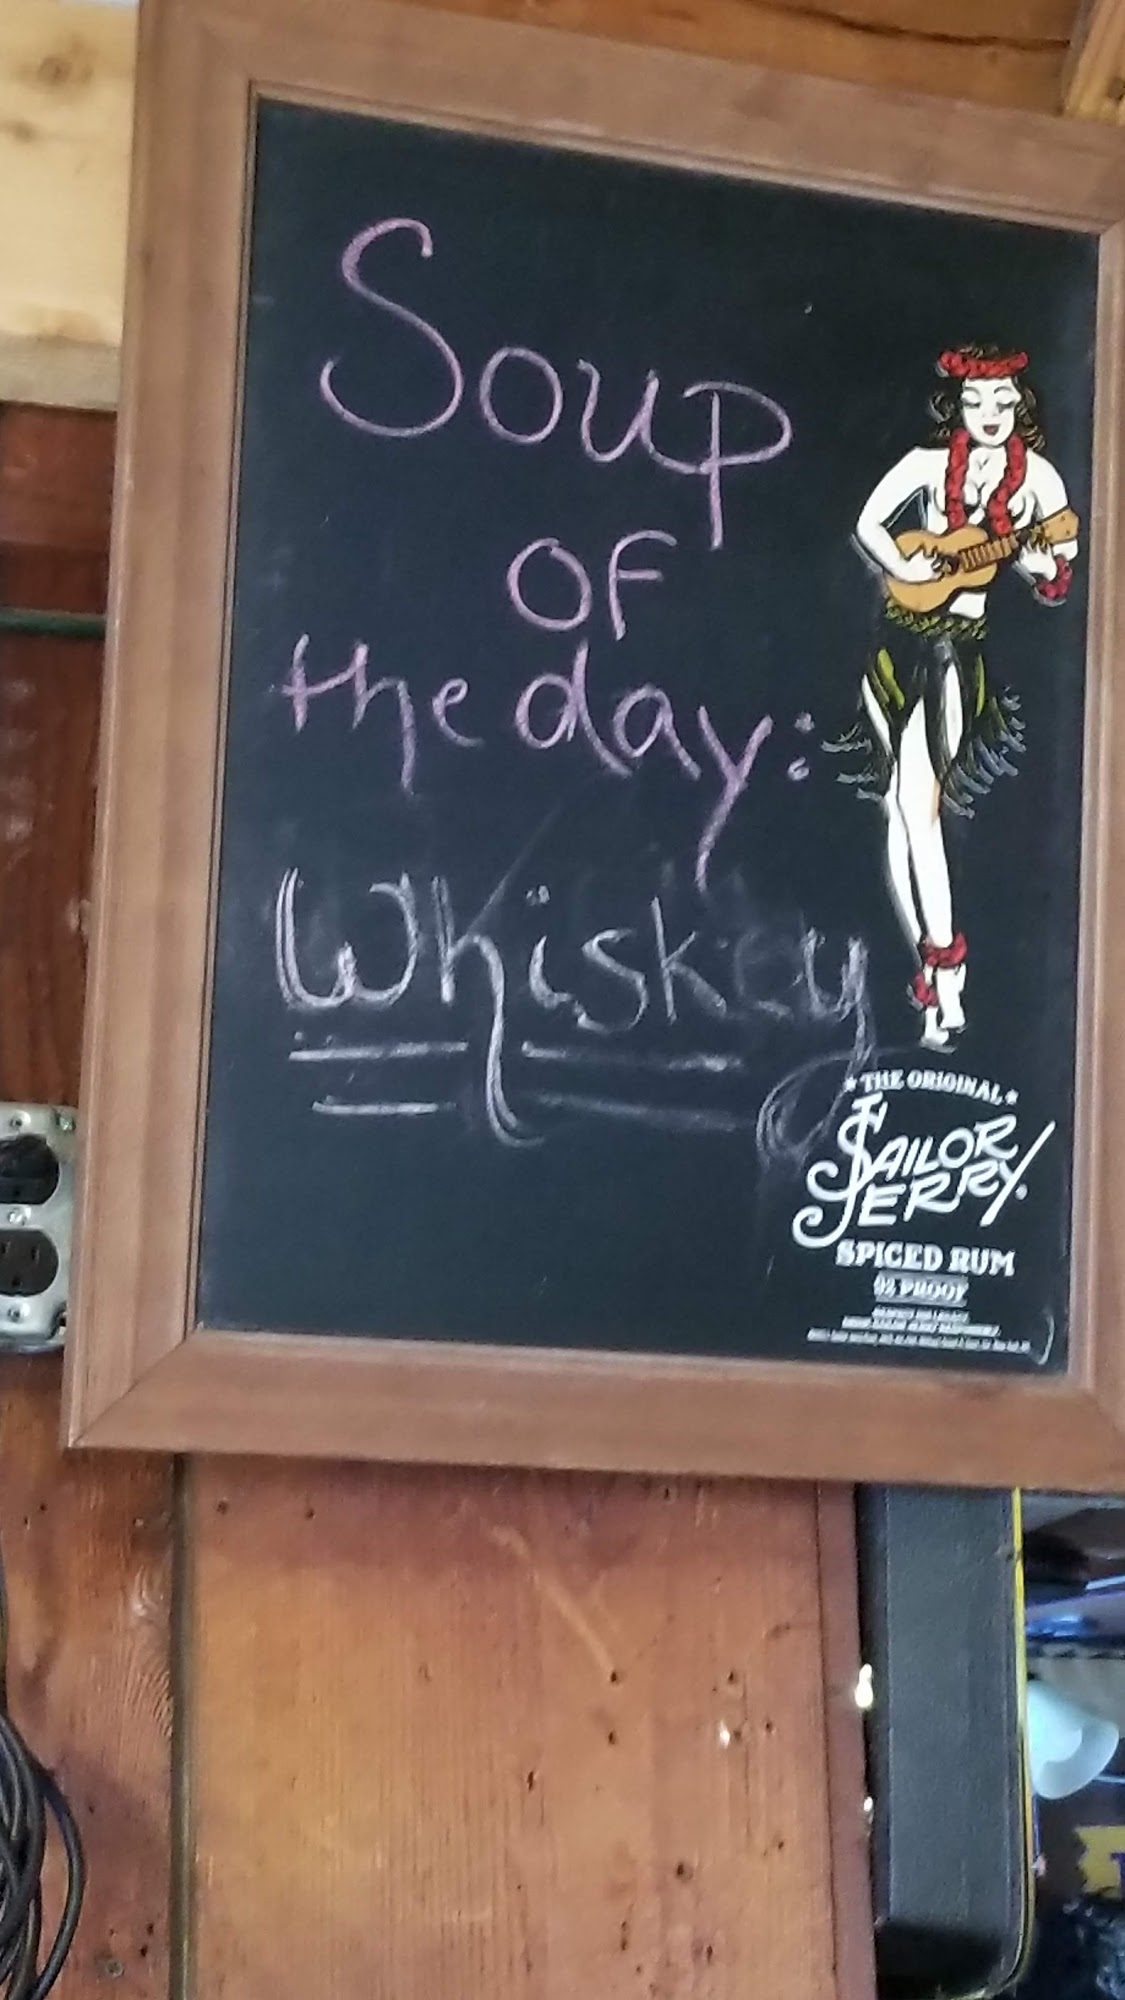 Soup
of
the day:
Whiskey
THE ORIGINAL
SAILOR
JERRY
SPICED RUM
92 PROOF